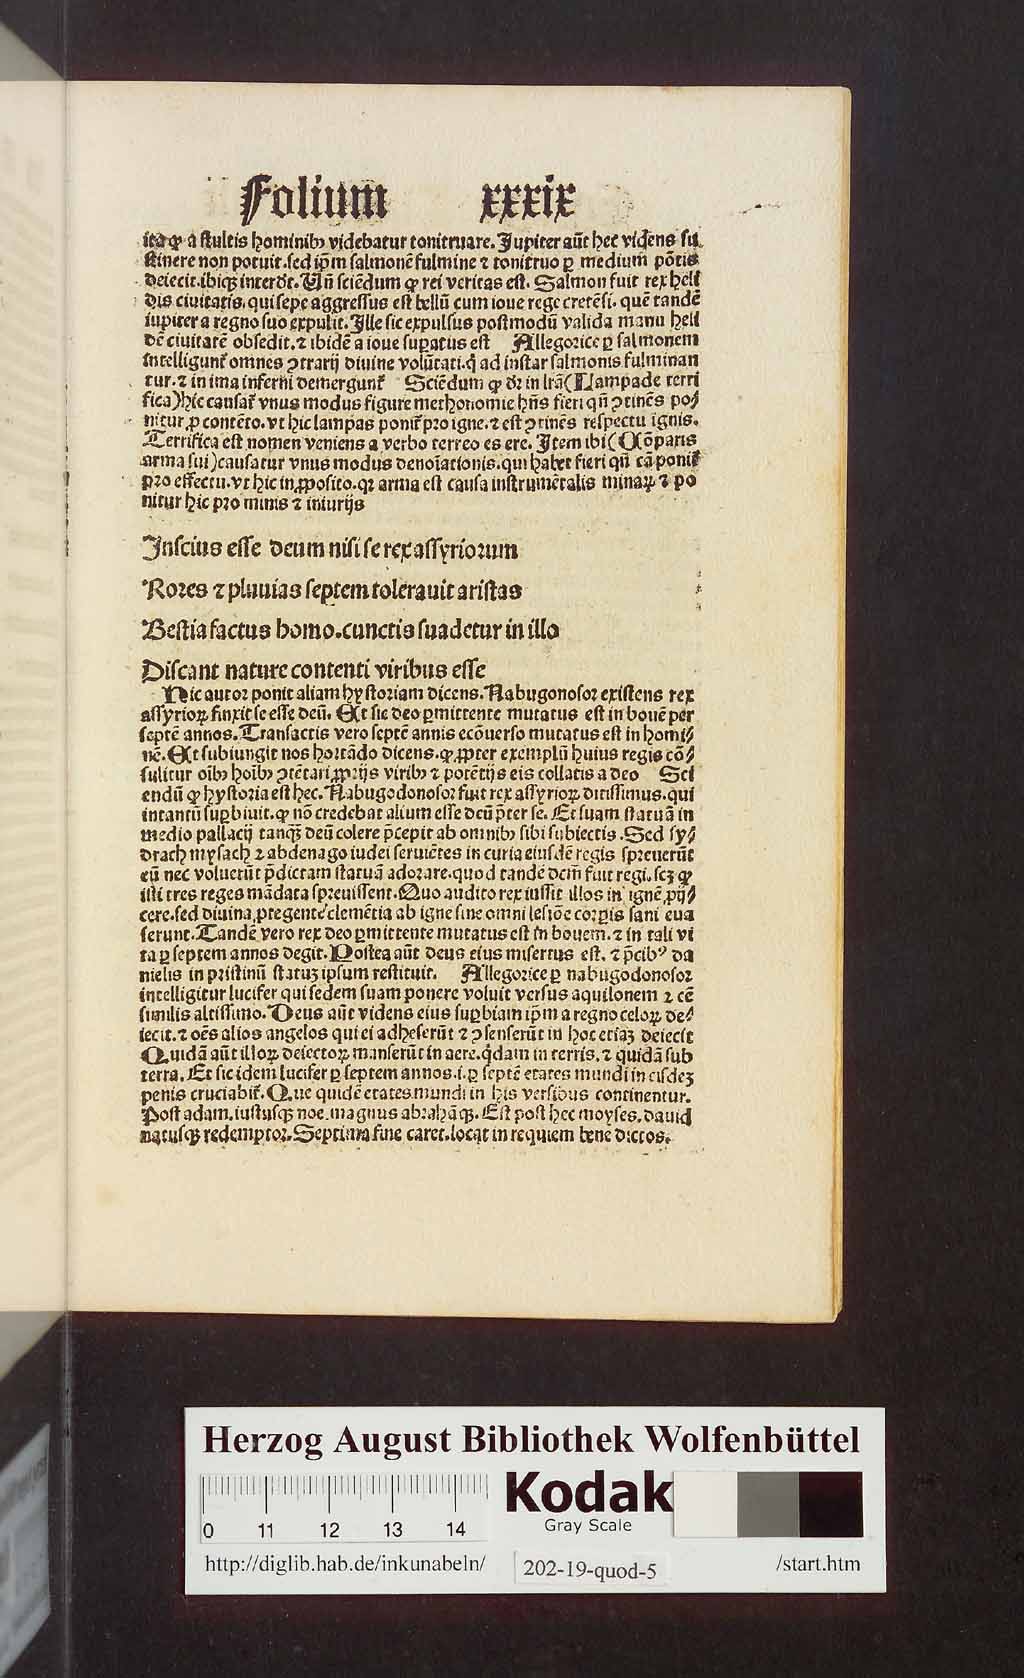 Folium xxxix
ita ꝙ a stultis hominibꝫ videbatur tonitruare. Jupiter aūt hec videns su
stinere non potuit. sed ip̄m salmonē fulmine ⁊ tonitruo ꝑ medium pōtis
deiecit. ibiqꝫ interd̄t. Un̄ sciēdum ꝙ rei veritas est. Salmon fuit rex heli
dis ciuitatis. qui sepe aggressus est bellū cum ioue rege cretēsi. quē tandē
iupiter a regno suo expulit. Ille sic expulsus postmodū valida manu heli
dē ciuitatē obsedit. ⁊ ibidē a ioue suꝑatus est Allegorice ꝑ salmonem
intelligunt᷑ omnes ꝯtrarij diuine volūtati. q̇ ad instar salmonis fulminan
tur. ⁊ in ima inferni demergunt᷑ Sciēdum ꝙ dr̄ in lr̄a (Lampade terri
fica) hic causat᷑ vnus modus figure methonomie hn̄s fieri qn̄ ꝯtinēs po⸗
nitur ꝓ contēto. vt hic lampas ponit᷑ pro igne. ⁊ est ꝯtinēs respectu ignis.
Terrifica est nomen veniens a verbo terreo es ere. Item ibi (Cōparis
arma sui) causatur vnus modus denoīationis. qui habet fieri qn̄ cā ponit᷑
pro effectu. vt hic in ꝓposito. qꝛ arma est causa instrumētalis minaꝝ ⁊ po
nitur hic pro minis ⁊ iniurijs
Inscius esse deum nisi se rex assyriorum
Rores ⁊ pluuias septem tolerauit aristas
Bestia factus homo. cunctis suadetur in illo
Discant nature contenti viribus esse
Hic autor ponit aliam hystoriam dicens. Nabugonosor existens rex
assyrioꝝ finxit se esse deū. Et sic deo ꝑmittente mutatus est in bouē per
septē annos. Transactis vero septē annis ecōuerso mutatus est in homi⸗
nē. Et subiungit nos hortādo dicens. ꝙ ꝓpter exemplū huius regis cō⸗
sulitur oībꝫ hoībꝫ ꝯtētari ꝓprijs viribꝫ ⁊ potētijs eis collatis a deo Sci
endū ꝙ hystoria est hec. Nabugodonosor fuit rex assyrioꝝ ditissimus. qui
intantū suꝑbiuit. ꝙ nō credebat alium esse deū p̄ter se. Et suam statuā in
medio pallacij tanqꝫ deū colere p̄cepit ab omnibꝫ sibi subiectis. Sed sy⸗
drach mysach ⁊ abdenago iudei seruiētes in curia eiusdē regis spreuerūt
eū nec voluerūt p̄dictam statuā adorare. quod tandē dcm̄ fuit regi. scꝫ ꝙ
isti tres reges mādata spreuissent. Quo audito rex iussit illos in ignē ꝓij⸗
cere. sed diuina ꝓtegente clemētia ab igne sine omni lesiōe corꝑis sani eua
serunt. Tandē vero rex deo ꝑmittente mutatus est in bouem. ⁊ in tali vi
ta ꝑ septem annos degit. Postea aūt deus eius misertus est. ⁊ p̄cibꝰ da
nielis in pristinū statuꝫ ipsum restituit. Allegorice ꝑ nabugodonosor
intelligitur lucifer qui sedem suam ponere voluit versus aquilonem ⁊ eē
similis altissimo. Deus aūt videns eius suꝑbiam ip̄m a regno celoꝝ de⸗
iecit. ⁊ oēs alios angelos qui ei adheserūt ⁊ ꝯsenserūt in hoc etiaꝫ deiecit
Quidā aūt illoꝝ deiectoꝝ manserūt in aere. q̇dam in terris. ⁊ quidā sub
terra. Et sic idem lucifer ꝑ septem annos. i. ꝑ septē etates mundi in eisdeꝫ
penis cruciabit᷑. Que quidē etates mundi in his versibus continentur.
Post adam. iustusqꝫ noe. magnus abrahāqꝫ. Est post hec moyses. dauid
natusqꝫ redemptor. Septima fine caret. locat in requiem bene dictos.
Herzog August Bibliothek Wolfenbüttel
0 11 12 13 14
Kodak
Gray Scale
http://diglib.hab.de/inkunabeln/ 202-19-quod-5 /start.htm